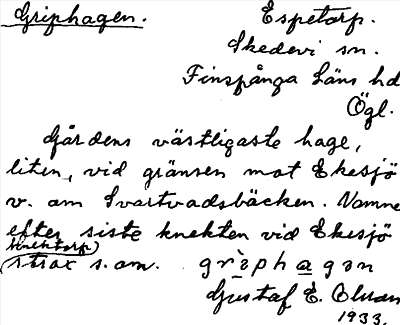 Griphagen.
Espetorp.
Skedevi sn.
Finspånga läns hd
Ögl.
Gårdens västligaste hage,
liten, vid gränsen mot Ekesjö
v. om Svartvadsbäcken. Namne
efter siste knekten vid Ekesjö
Knektorp)
(strax s.om. grìphagən
Gustaf E.
1933.